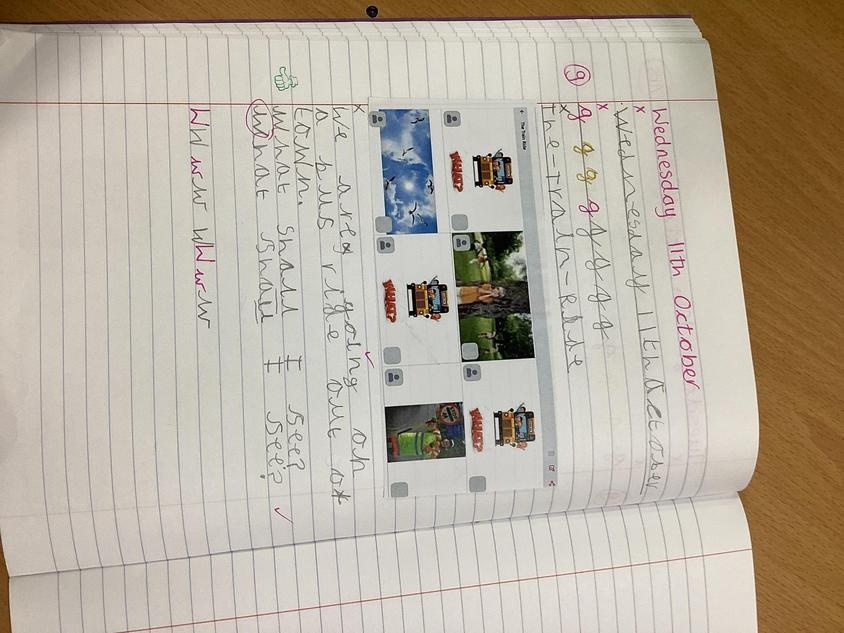 Wednesday 11th October
Wednesday 11th October
g g g g g g g g
The-Train-Ride
The Train Ride
WHAT?
WHAT?
WHAT?
We are going on
a bus ride out of
town.
What shall I see?
What shall I see?
W W w w W W w w